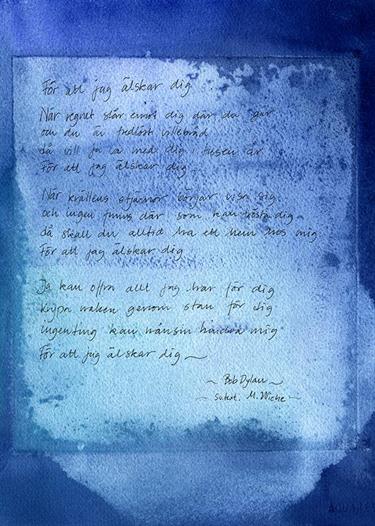 För att jag älskar dig
När regnet slår emot dig där du går
och du är fredlöst villebråd
då vill ja ta med dig
För att jag älskar dig
När kvällens stjärnor börjar visa sig
och ingen finns där som kan trösta dig
då skall du alltid ha ett hem hos mig
För att jag älskar dig
Ja kan offra allt jag har för dig
krypa naken genom stan för dig
ingenting kan nånsin hindra mig
För att jag älskar dig
~ Bob Dylan ~
~ M. Wiehe ~